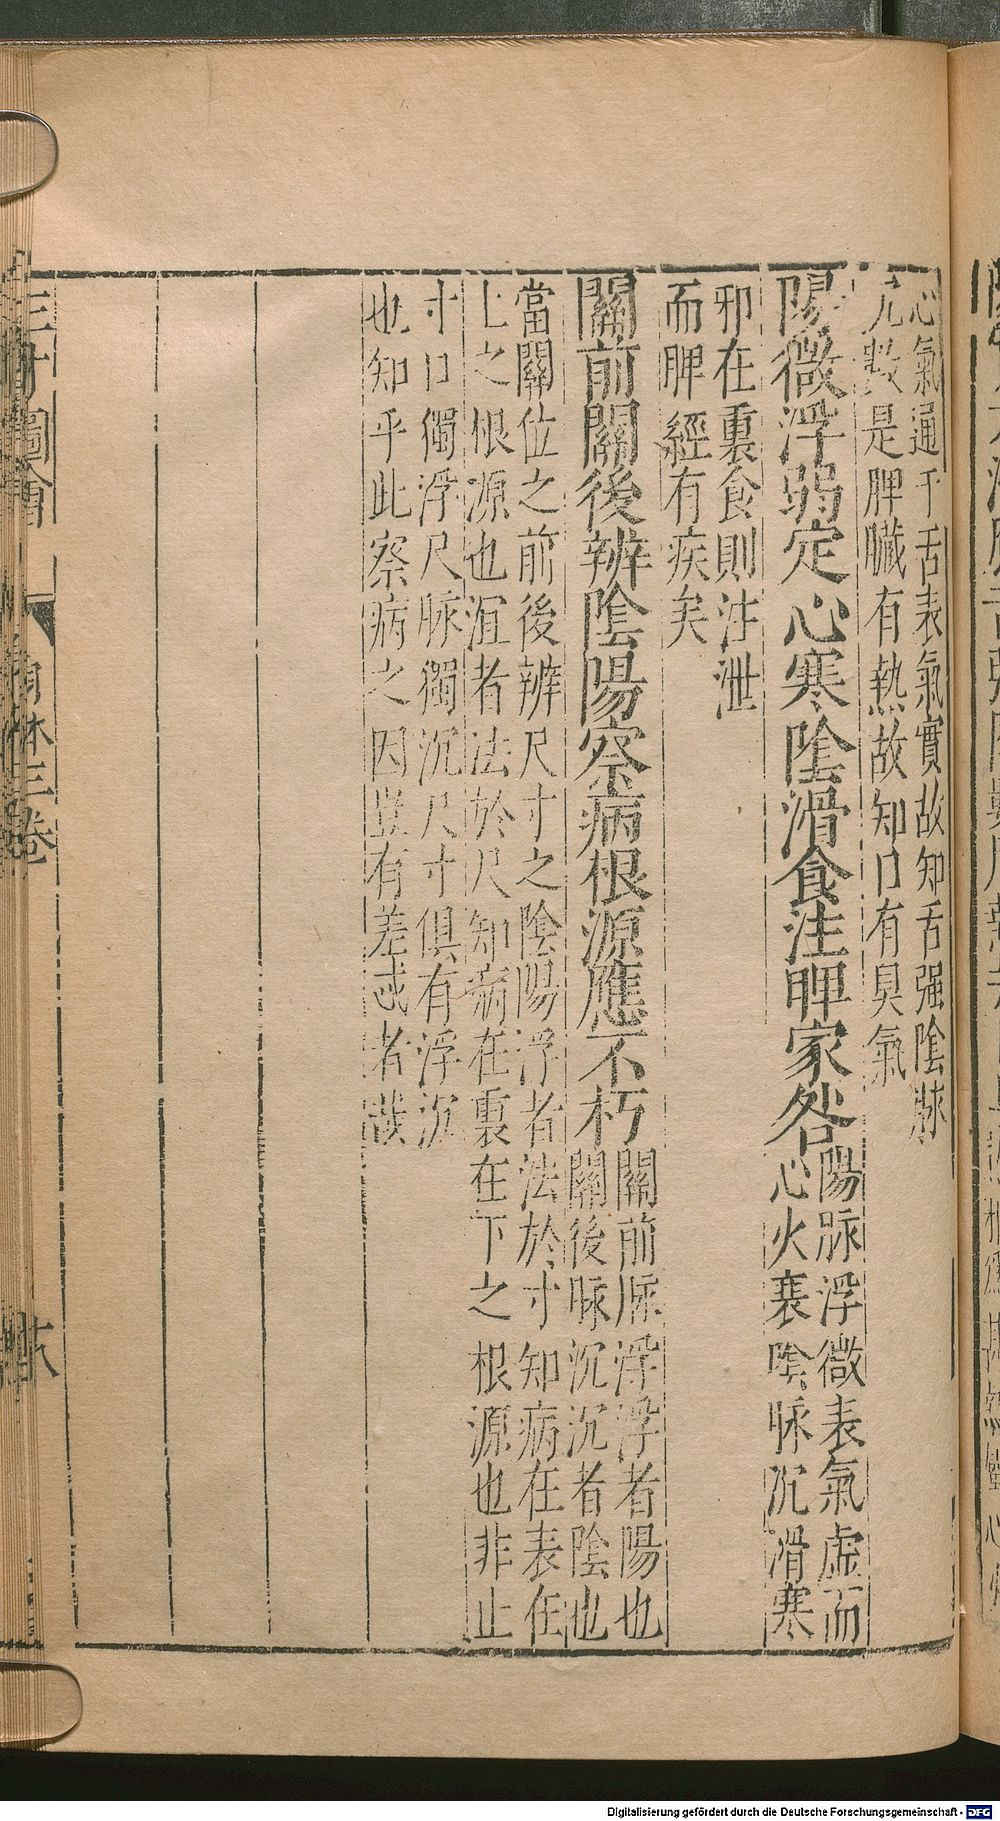 心氣通于舌表氣實故知舌强陰脉
是脾臟有熱故知口有臭氣
陽微浮弱定心寒陰滑食注脾家咎
陽脉浮微表氣虛而
心火衰陰脉沉滑寒
邪在裏食則注泄
而脾經有疾矣
關前關後辨陰陽察病根源應不朽
關前脉浮浮者陽也
關後脉沉沉者陰也
當關位之前後辨尺寸之陰陽浮者法於寸知病在表在
上之根源也沉者法於尺知病在裏在下之根源也非止
寸口獨浮尺脉獨沉尺寸俱有浮沉
也知乎此察病之因豈有差忒者哉
三才圖會
身體三卷
Digitalisierung gefördert durch die Deutsche Forschungsgemeinschaft - DFG